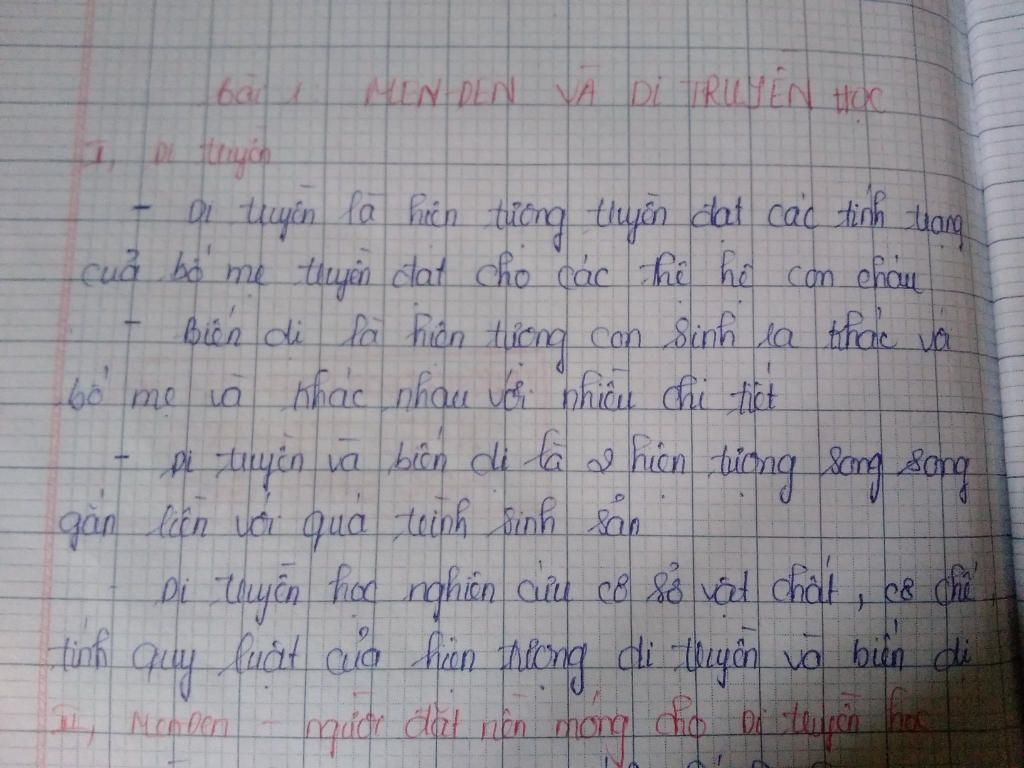 Bài 1 MENDEN VÀ DI TRUYỀN HỌC
I, Di truyền
- Di truyền là hiện tượng truyền đạt các tính trạng
của bố mẹ truyền đạt cho các thế hệ con cháu
- Biến dị là hiện tượng con sinh ra khác với
bố mẹ và khác nhau với nhiều chi tiết
- Di truyền và biến dị là 2 hiện tượng song song
gắn liền với quá trình sinh sản
- Di truyền học nghiên cứu cơ sở vật chất, cơ chế
tính quy luật của hiện tượng di truyền và biến dị
II, MenDen - người đặt nền móng cho Di truyền học